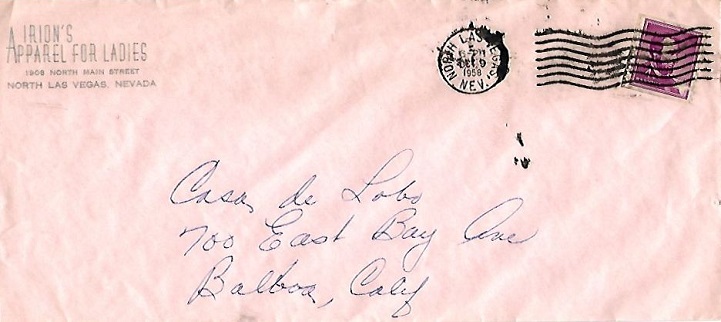 IRION'S
APPAREL FOR LADIES
1908 NORTH MAIN STREET
NORTH LAS VEGAS, NEVADA
NORTH LAS VEGAS,
1958
NEV.
Casa de Lobo
700 East Bay Ave
Balboa, Calif